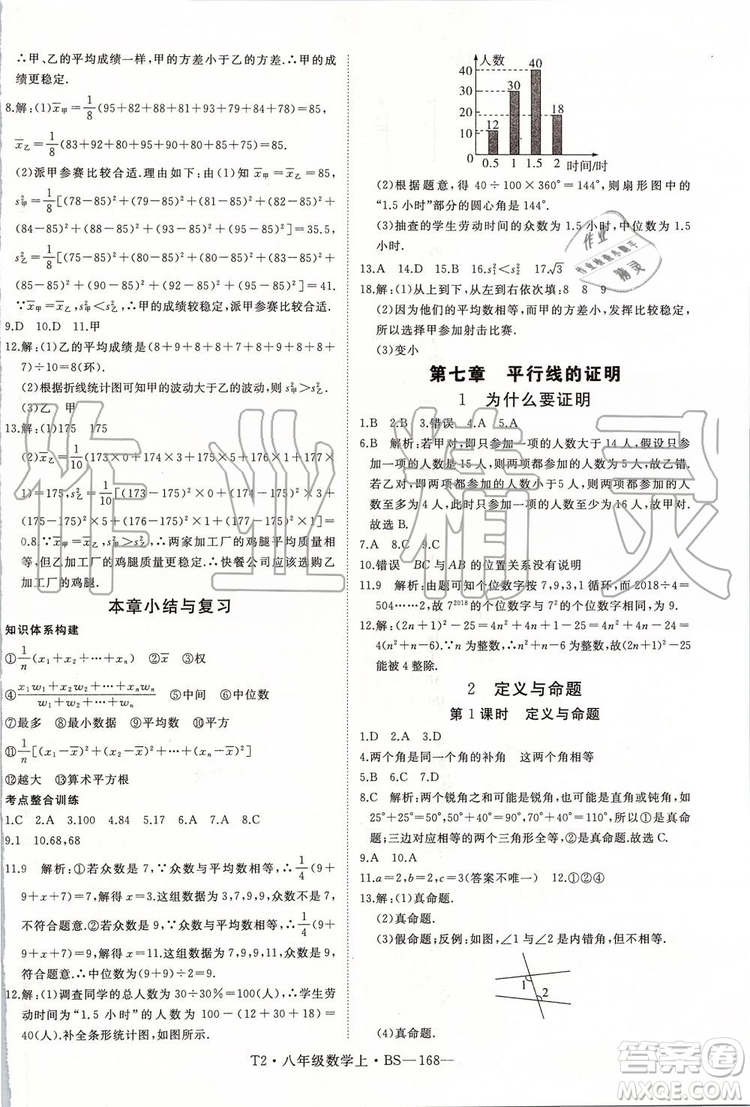 ∴甲、乙的平均成绩一样，甲的方差小于乙的方差.∴甲的成
绩更稳定.
8.解：(1)x̄甲=1/8(95+82+88+81+93+79+84+78)=85，
x̄乙=1/8(83+92+80+95+90+80+85+75)=85.
(2)派甲参赛比较合适.理由如下：由(1)知x̄甲=x̄乙，
s²甲=1/8[(78-85)²+(79-85)²+(81-85)²+(82-85)²+
(84-85)²+(88-85)²+(93-85)²+(95-85)²]=35.5，
s²乙=1/8[(75-85)²+(80-85)²+(80-85)²+(83-85)²+
(85-85)²+(90-85)²+(92-85)²+(95-85)²]=41.
∵x̄甲=x̄乙，s²甲<s²乙，∴甲的成绩较稳定，派甲参赛比较合适.
9.D 10.D 11.甲
12.解：(1)乙的平均成绩是(8+9+8+8+7+8+9+8+8+
7)÷10=8(环).
(2)根据折线统计图可知甲的波动大于乙的波动，则s²甲>s²乙.
乙 甲
13.解：(1)175 175
(2)s²乙=1/10[(173×0+173×1+174×2+175×4+176×2+
(175-175)²×4+(176-175)²×2+(177-175)²×1]=
0.8.∵s²甲>s²乙，∴两家加工厂的鸡腿质量平均水平一样，
乙加工厂的鸡腿质量更稳定.因此快餐公司应该选购乙
加工厂的鸡腿.
本章小结与复习
知识体系构建
①1/n(x₁+x₂+⋯+xₙ) ②x̄ ③权
④(x₁w₁+x₂w₂+⋯+xₙwₙ)/(w₁+w₂+⋯+wₙ) ⑤中间 ⑥中位数
⑦最多 ⑧最小数据 ⑨平方
⑪1/n[(x₁-x̄)²+(x₂-x̄)²+⋯+(xₙ-x̄)²]
⑫越大 ⑬算术平方根
考点整合训练
1.C 2.A 3.100 4.84 5.17 6.A 7.A 8.C
9.1 10.68,68
11.9 解析：①若众数是7，∵众数与平均数相等，∴1/4(9+
9+x+7)=7，解得x=3.这组数据为3，7，9，9，众数为9，
不符合题意；②若众数是9，∵众数与平均数相等，∴1/4(9
+9+x+7)=9，解得x=11.这组数据为7，9，9，11，众数
为9，符合题意，∴中位数为(9+9)÷2=9.
12.解：(1)调查同学的总人数为30÷30%=100(人)，∴学生劳
动时间为“1.5小时”的人数为100-(12+30+18)=
40(人).补全条形统计图如图所示.
人数
40
30
20
10
0
12
30
40
18
0.5 1 1.5 2 时间/时
(2)根据题意，得40÷100×360°=144°，则扇形图中的
“1.5小时”部分的圆心角为144°.
(3)抽查的学生劳动时间的众数为1.5小时，中位数为1.5
小时.
13.A 14.D 15.B 16.s₁²<s₂² 17.√3
18.解：(1)从上到下，从左到右依次填：8 8 9
(2)因为他们的平均数相等，而甲的方差小，发挥比较稳定，
所以选择甲参加射击比赛.
(3)变小
第七章 平行线的证明
1 为什么要证明
1.B 2.B 3.错误 4.A 5.A
6.B 解析：若甲对，即只参加一项的人数大于14人，假设只参
加一项的人数是15人，则两项都参加的人数为5人，故乙错.
若乙对，即两项都参加的人数小于5人，则两项都参加的人
数至多为4人，此时只参加一项的人数至少为16人，故甲对.
故选B.
7.A 8.C 9.C
10.错误 BC与AB的位置关系没有说明
11.9 解析：由题可知个位数字按7，9，3，1循环，而2018÷4=
504……2，∴7²⁰¹⁸的个位数字与7²的个位数字相同，为9.
12.解：(2n+1)²-25=4n²+4n+1-25=4n²+4n-24=
4(n²+n-6).∵n为整数，∴n²+n-6为整数，∴(2n+1)²-25
能被4整除.
2 定义与命题
第1课时 定义与命题
1.D 2.A 3.C
4.两个角是同一个角的补角 这两个角相等
5.B 6.C 7.D
8.C 解析：两个锐角之和可能是锐角，也可能是直角或钝角，如
25°+25°=50°，50°+40°=90°，50°+60°=110°，故C是假命
题；三边对应相等的两个三角形全等，故D也是命题.
9.A 10.A
11.a=2，b=1，c=3(答案不唯一) 12.①②④
13.解：(1)真命题.
(2)真命题.
(3)假命题；反例：如图，∠1与∠2是内错角，但不相等.
1
2
(4)真命题.
T2·八年级数学上·BS—168—
作业精灵
MXQE.COM